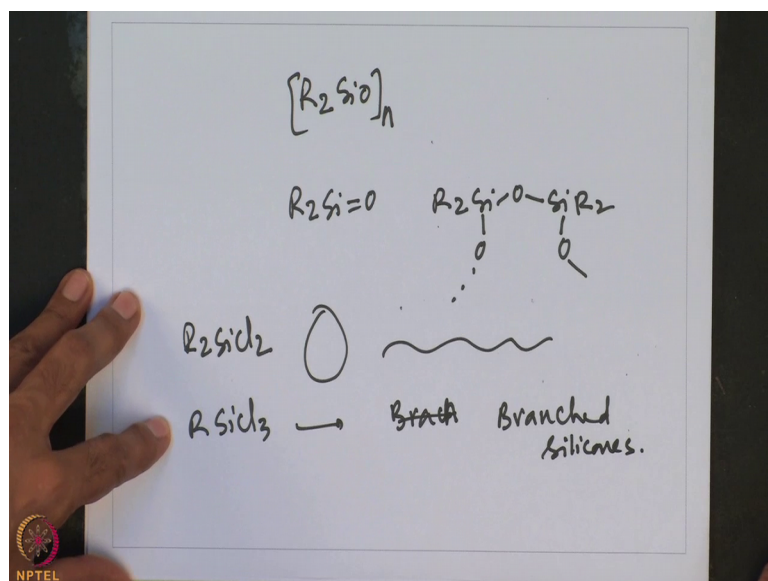 [R₂SiO]n
R₂Si=O R₂Si-O-SiR₂
O O
R₂SiCl₂
RSiCl₃ → Branched
silicones.
NPTEL